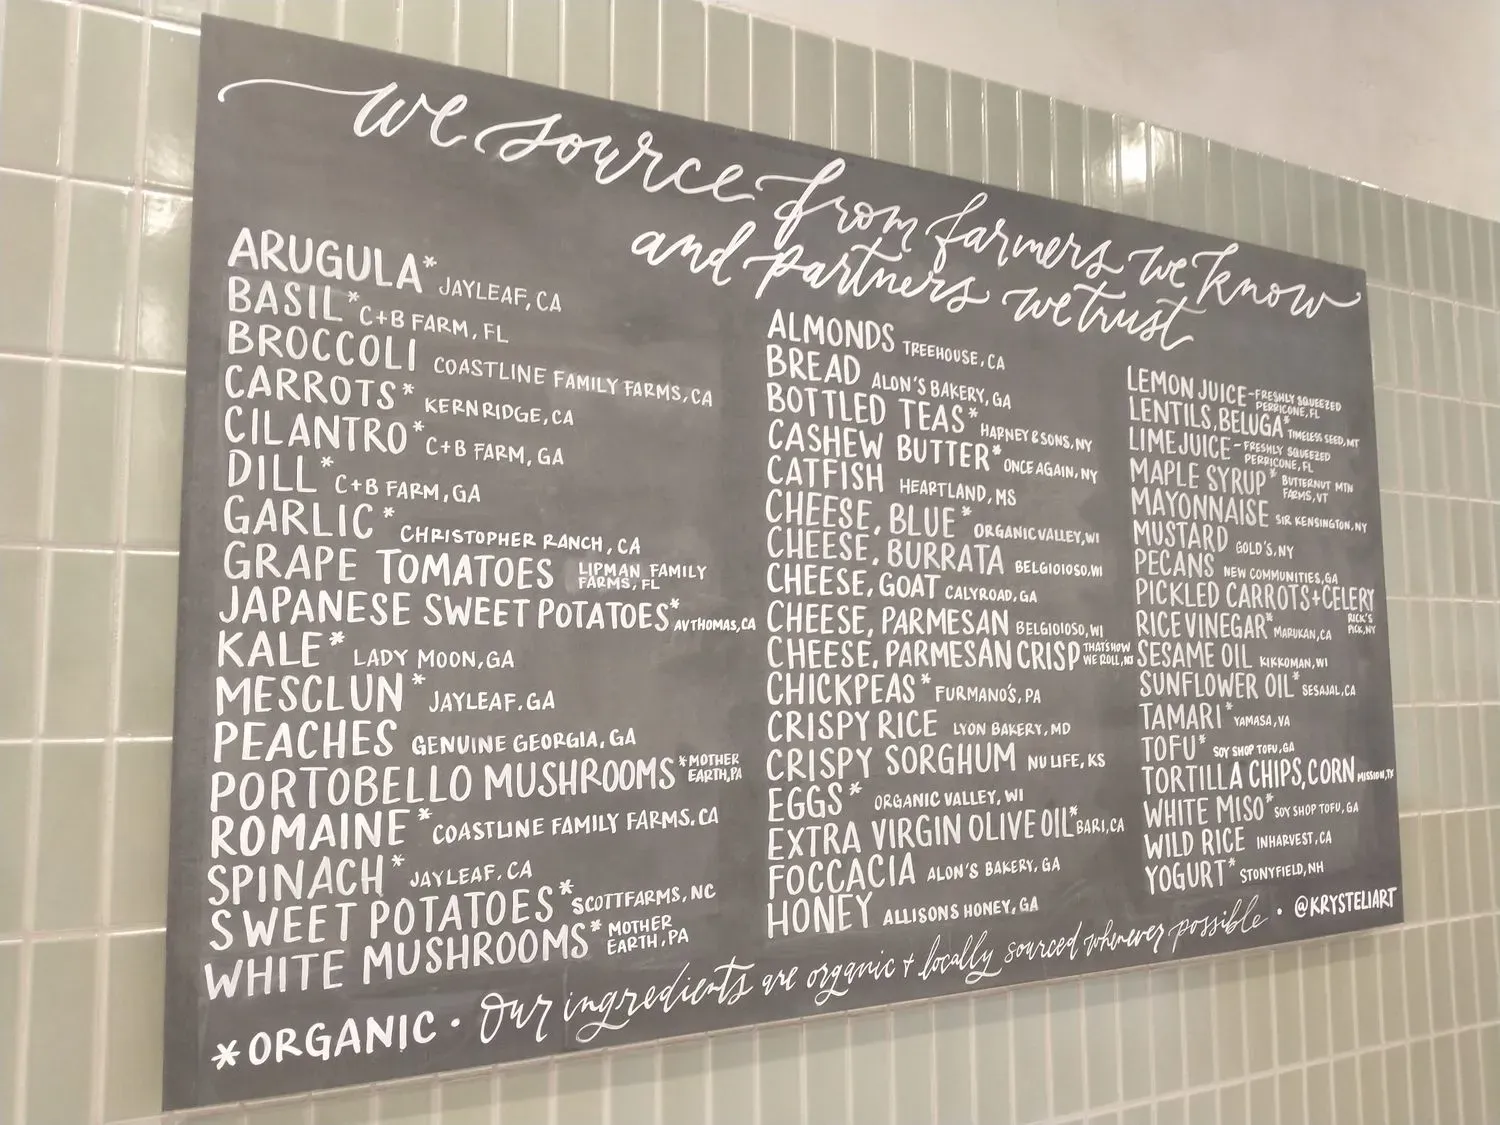 we source from farmers we know
and partners we trust
ARUGULA* JAYLEAF, CA
BASIL* C+B FARM, FL
BROCCOLI COASTLINE FAMILY FARMS, CA
CARROTS* KERN RIDGE, CA
CILANTRO* C+B FARM, GA
DILL* C+B FARM, GA
GARLIC* CHRISTOPHER RANCH, CA
GRAPE TOMATOES LIPMAN FAMILY
FARMS, FL
JAPANESE SWEET POTATOES* AV THOMAS, CA
KALE* LADY MOON, GA
MESCLUN* JAYLEAF. GA
PEACHES GENUINE GEORGIA, GA
PORTOBELLO MUSHROOMS* MOTHER
EARTH, PA
ROMAINE* COASTLINE FAMILY FARMS. CA
SPINACH* JAYLEAF. CA
SWEET POTATOES* SCOTT FARMS, NC
WHITE MUSHROOMS* MOTHER
EARTH, PA
ALMONDS TREEHOUSE, CA
BREAD ALON'S BAKERY, GA
BOTTLED TEAS* HARNEY & SONS, NY
CASHEW BUTTER* ONCE AGAIN, NY
CATFISH HEARTLAND, MS
CHEESE, BLUE* ORGANIC VALLEY, WI
CHEESE, BURRATA BELGIOIOSO, WI
CHEESE, GOAT CALYROAD, GA
CHEESE, PARMESAN BELGIOIOSO, WI
CHEESE, PARMESAN CRISP THAT'S HOW
WE ROLL, NJ
CHICKPEAS* FURMANO'S, PA
CRISPY RICE LYON BAKERY, MD
CRISPY SORGHUM NU LIFE, KS
EGGS* ORGANIC VALLEY, WI
EXTRA VIRGIN OLIVE OIL* BARI, CA
FOCCACIA ALON'S BAKERY, GA
HONEY ALLISONS HONEY, GA
LEMON JUICE - FRESHLY SQUEEZED
PERRICONE, FL
LENTILS, BELUGA* TIMELESS SEED, MT
LIME JUICE - FRESHLY SQUEEZED
PERRICONE, FL
MAPLE SYRUP* BUTTERNUT MTN
FARMS, VT
MAYONNAISE SIR KENSINGTON, NY
MUSTARD GOLD'S, NY
PECANS NEW COMMUNITIES, GA
PICKLED CARROTS + CELERY
RICK'S
PICK, NY
RICE VINEGAR* MARUKAN, CA
SESAME OIL KIKKOMAN, WI
SUNFLOWER OIL* SESAJAL, CA
TAMARI* YAMASA, VA
TOFU* SOY SHOP TOFU, GA
TORTILLA CHIPS, CORN MISSION, TX
WHITE MISO* SOY SHOP TOFU, GA
WILD RICE INHARVEST, CA
YOGURT* STONYFIELD, NH
*ORGANIC • Our ingredients are organic + locally sourced whenever possible • @KRYSTELIART